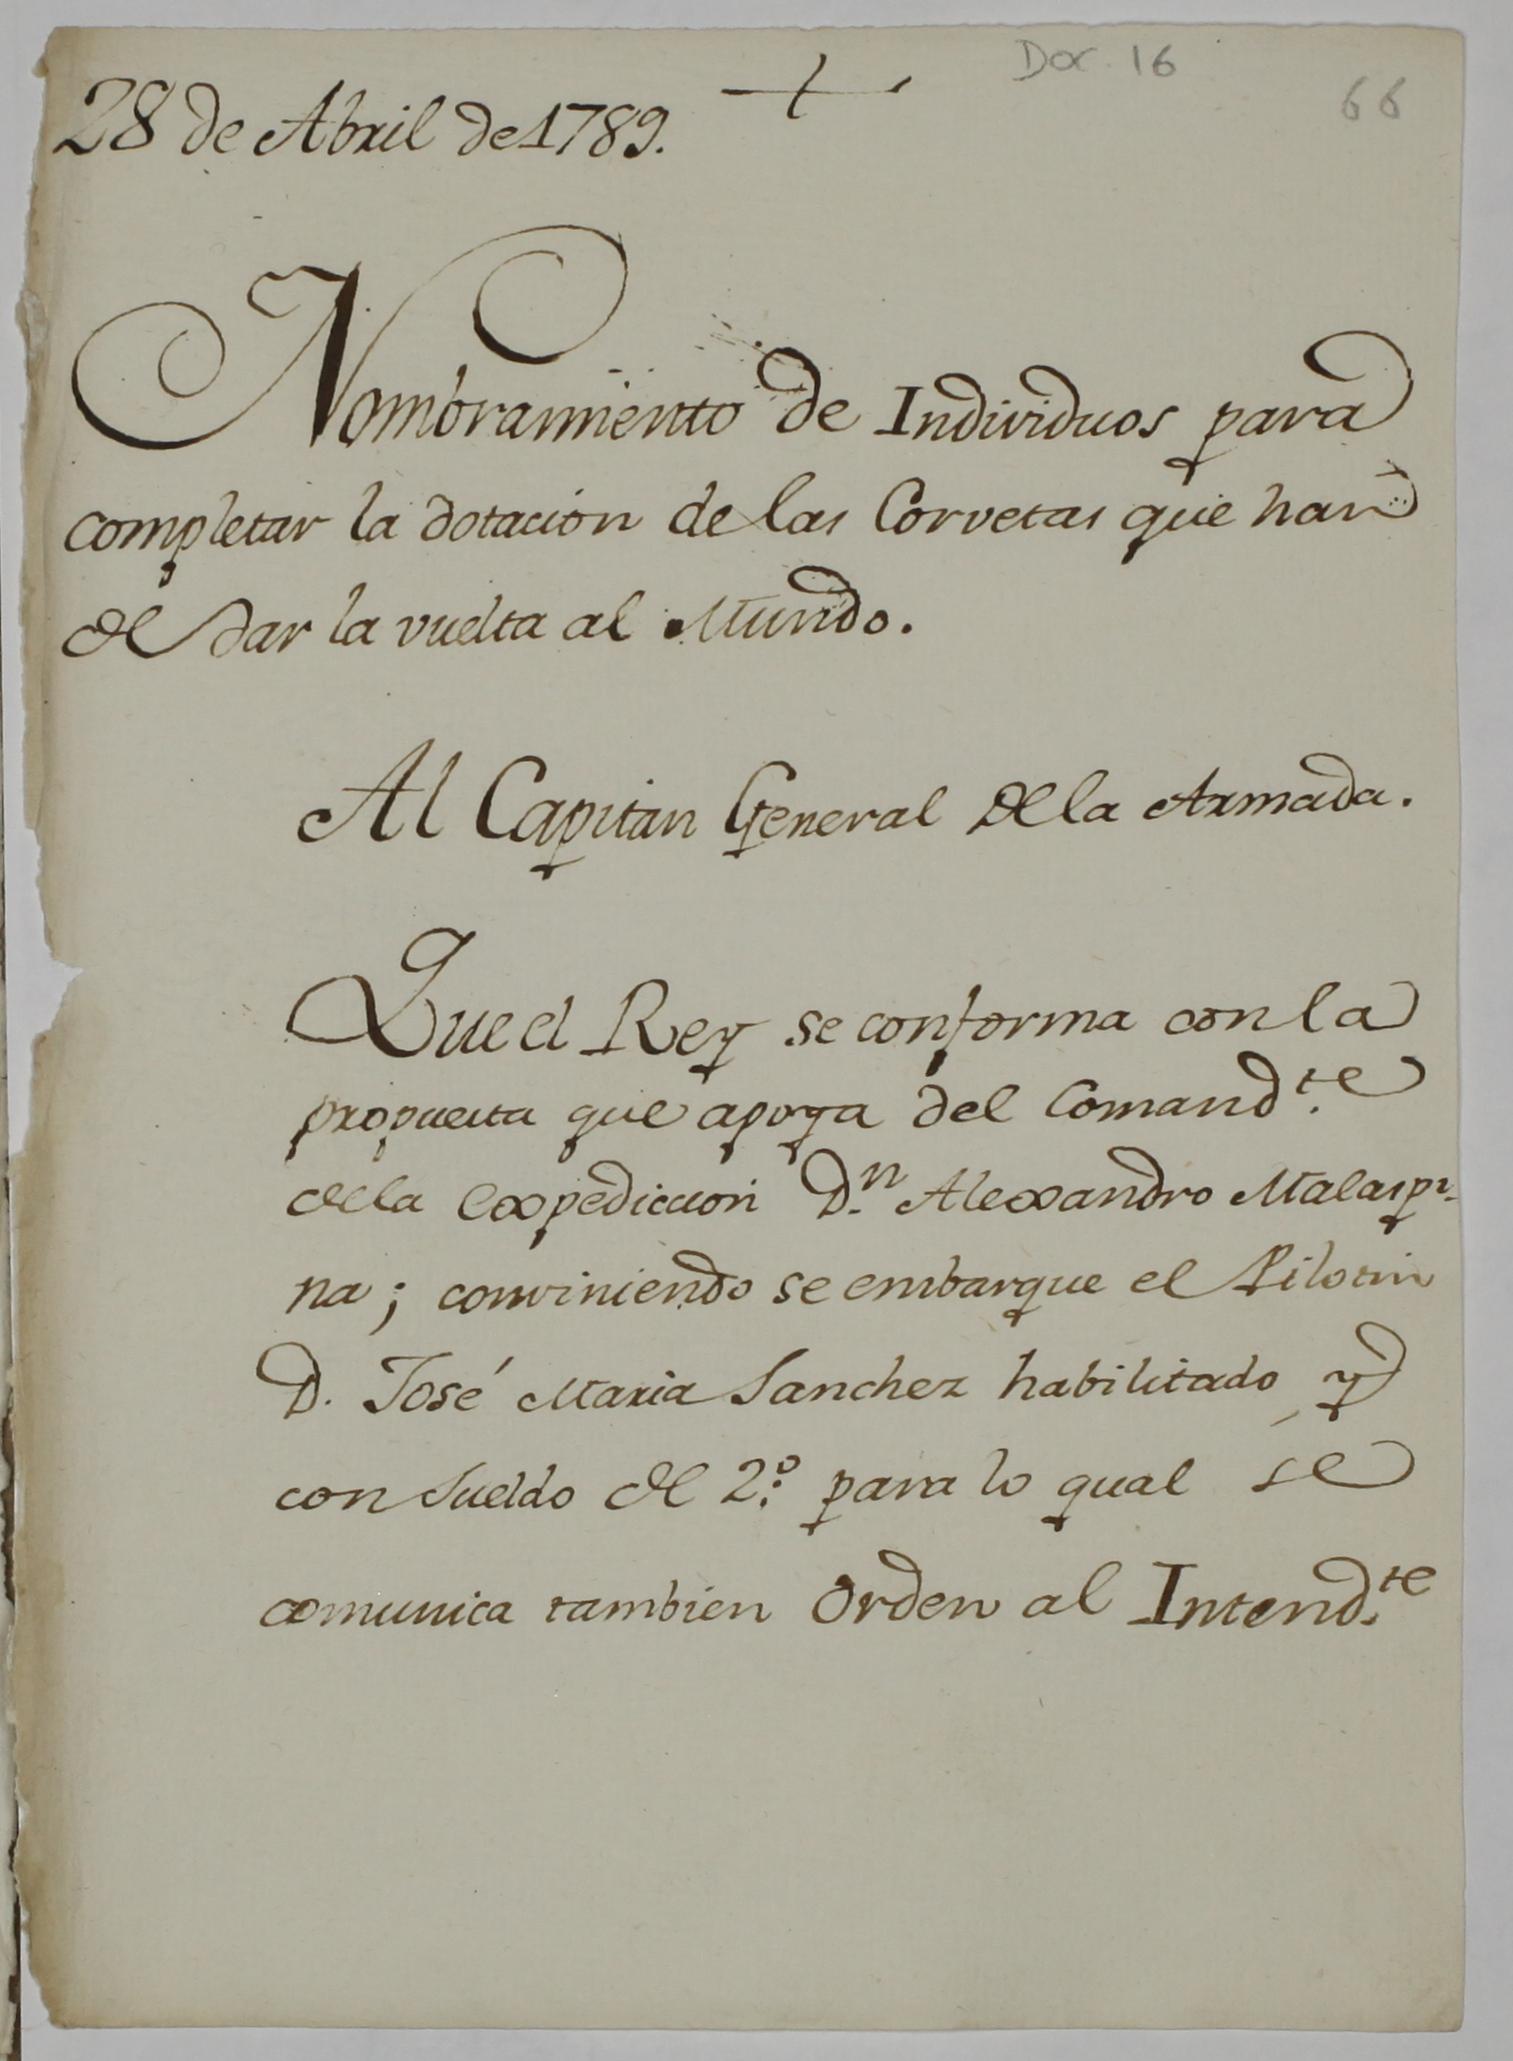 Doc. 16
66
28 de Abril de 1789.
Nombramiento de Individuos para
completar la dotacion de las Corvetas que han
de dar la vuelta al Mundo.
Al Capitan General de la Armada.
Que el Rey se conforma con la
propuesta que apoya del Comand.te
de la Expedicion D.n Alexandro Malaspi-
na; conviniendo se embarque el Pilotin
D. José Maria Sanchez habilitado y
con Sueldo de 2.º para lo qual se
comunica tambien Orden al Intend.te